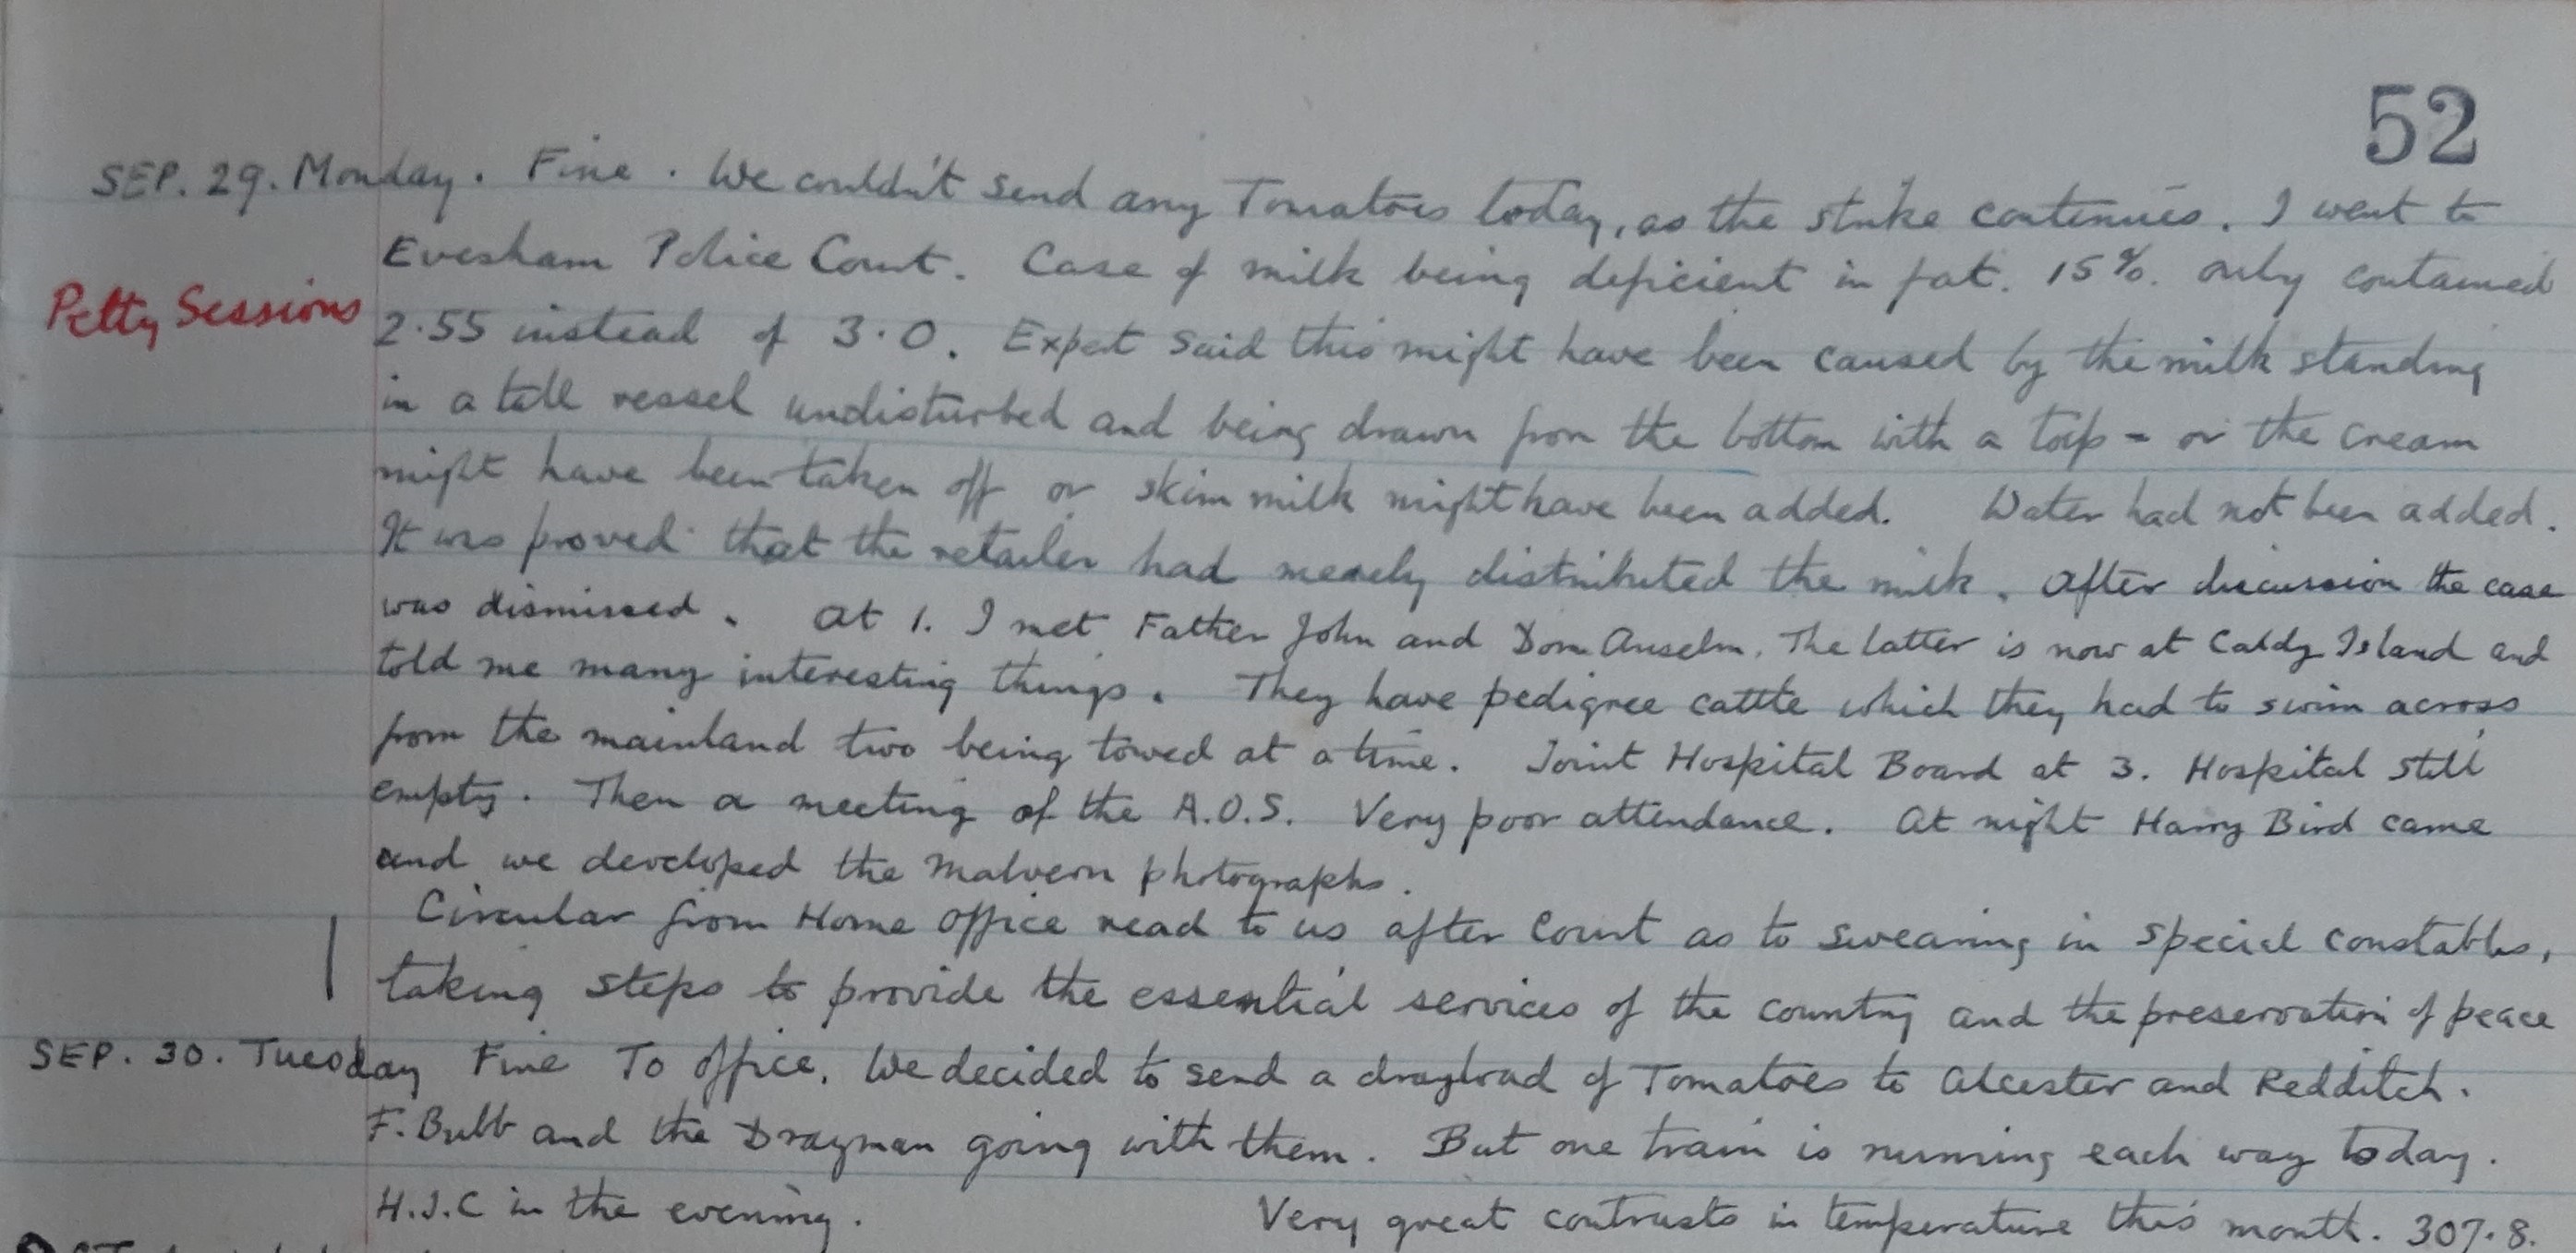 52
SEP. 29. Monday. Fine. We couldn't send any Tomatoes today, as the strike continues. I went to
Evesham Police Court. Case of milk being deficient in fat. 15%. only contained
Petty Sessions
2.55 instead of 3.0. Expert said this might have been caused by the milk standing
in a tall vessel undisturbed and being drawn from the bottom with a tap - or the cream
might have been taken off or skim milk might have been added. Water had not been added.
It was proved that the retailer had merely distributed the milk. After discussion the case
was dismissed. At 1. I met Father John and Dom Anselm. The latter is now at Caldy Island and
told me many interesting things. They have pedigree cattle which they had to swim across
from the mainland two being towed at a time. Joint Hospital Board at 3. Hospital still
empty. Then a meeting of the A.O.S. Very poor attendance. At night Harry Bird came
and we developed the Malvern photographs.
Circular from Home Office read to us after Court as to swearing in special constables,
taking steps to provide the essential services of the country and the preservation of peace
SEP. 30. Tuesday Fine To office. We decided to send a drayload of Tomatoes to Alcester and Redditch.
F. Bubb and the Drayman going with them. But one train is running each way today.
H.J.C in the evening. Very great contrasts in temperature this month. 307.8.